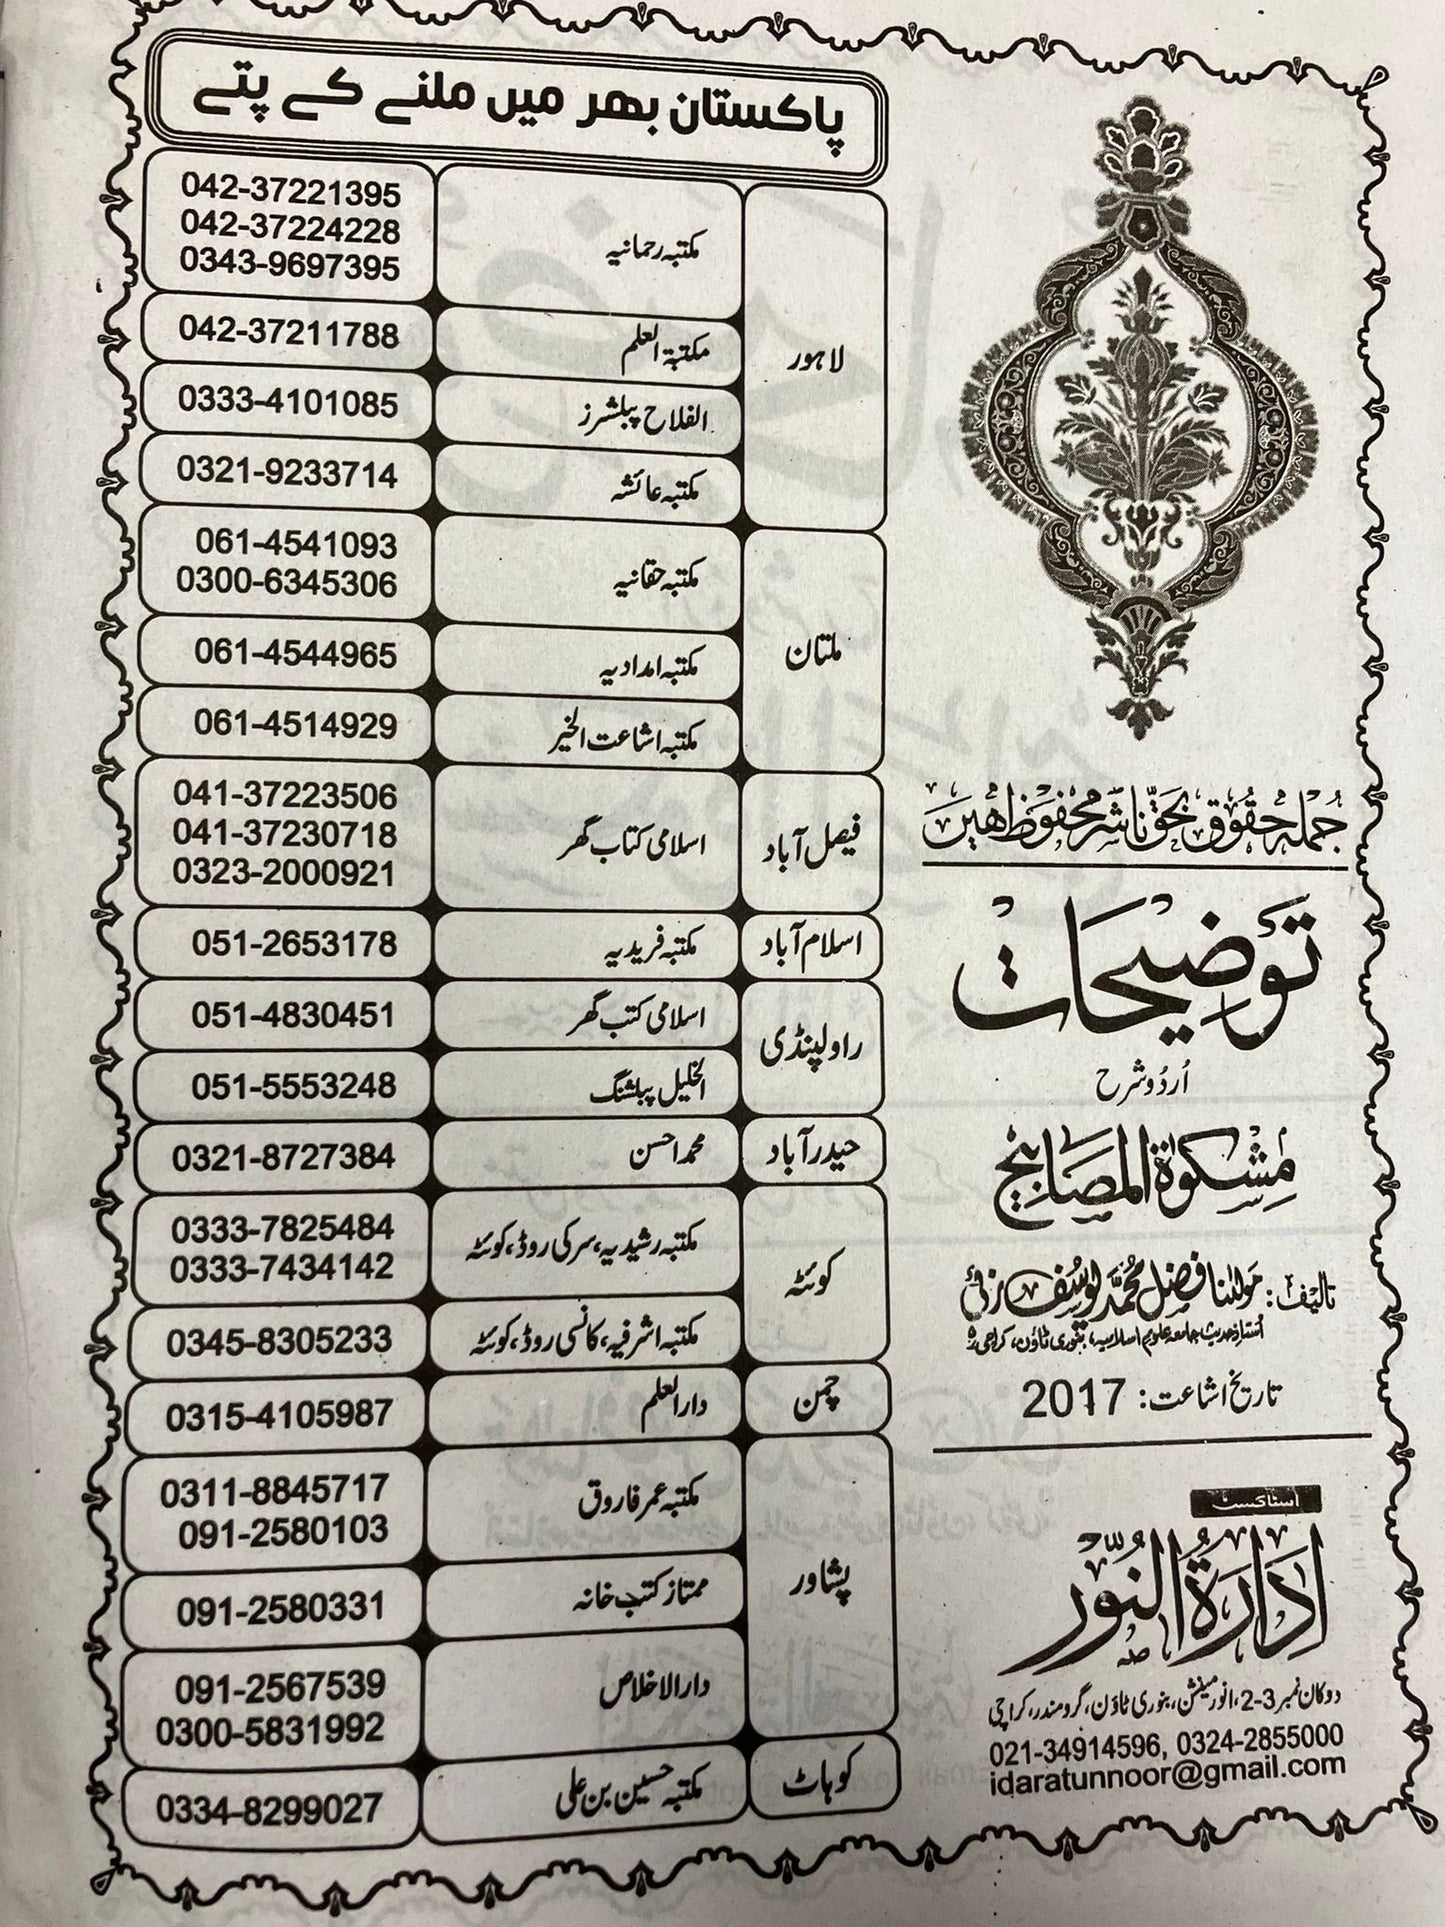 جملہ حقوق بحق ناشر محفوظ ہیں
توضیحات
اُردو شرح
مشکوٰۃ المصابیح
تالیف: مولانا فضل محمد یوسف زئی
اُستاذِ حدیث جامعہ علوم اسلامیہ، بنوری ٹاؤن، کراچی ۵
تاریخ اشاعت: 2017
اسٹاکسٹ
ادارۃ النور
دوکان نمبر 3-2، انور مینشن، بنوری ٹاؤن، گرومندر، کراچی
021-34914596, 0324-2855000
idaratunnoor@gmail.com
پاکستان بھر میں ملنے کے پتے
لاہور
مکتبہ رحمانیہ
042-37221395
042-37224228
0343-9697395
مکتبۃ العلم
042-37211788
الفلاح پبلشرز
0333-4101085
مکتبہ عائشہ
0321-9233714
ملتان
مکتبہ حقانیہ
061-4541093
0300-6345306
مکتبہ امدادیہ
061-4544965
مکتبہ اشاعت الخیر
061-4514929
فیصل آباد
اسلامی کتاب گھر
041-37223506
041-37230718
0323-2000921
اسلام آباد
مکتبہ فریدیہ
051-2653178
راولپنڈی
اسلامی کتب گھر
051-4830451
الخلیل پبلشنگ
051-5553248
حیدر آباد
محمد احسن
0321-8727384
کوئٹہ
مکتبہ رشیدیہ، سرکی روڈ، کوئٹہ
0333-7825484
0333-7434142
مکتبہ اشرفیہ، کانسی روڈ، کوئٹہ
0345-8305233
چمن
دارالعلم
0315-4105987
پشاور
مکتبہ عمر فاروق
0311-8845717
091-2580103
ممتاز کتب خانہ
091-2580331
دارالاخلاص
091-2567539
0300-5831992
کوہاٹ
مکتبہ حسین بن علی
0334-8299027